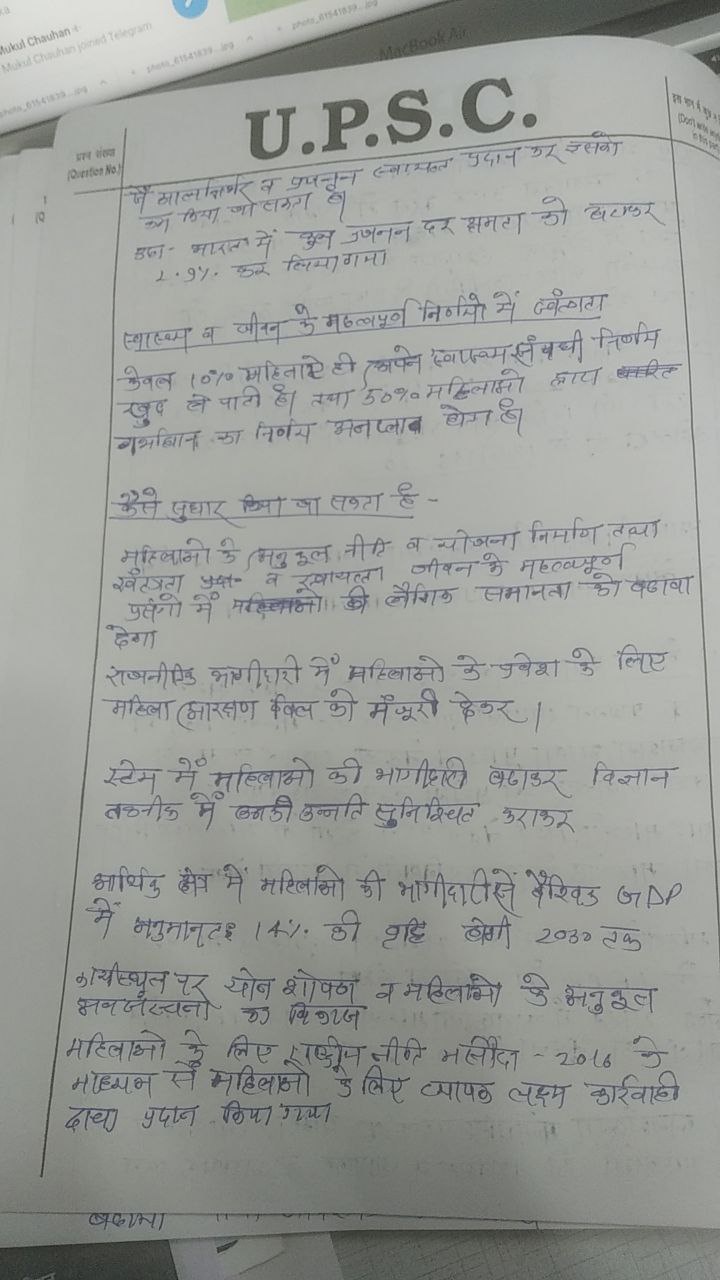 Mukul Chauhan
Mukul Chauhan joined Telegram
photo_61541839...jpg
photo_61541839...jpg
photo_61541839...jpg
MacBook Air
U.P.S.C.
प्रश्न संख्या
(Question No.)
(Don't write
में आत्मनिर्भर व प्रदान कर इसको
का किया जा सकता है।
उदा- भारत में कुल प्रजनन दर क्षमता को घटाकर
2.9% कर लिया गया
स्वास्थ्य व जीवन के महत्वपूर्ण निर्णयो में स्वंत्रता
केवल 10% महिलाऐ ही अपने स्वास्थ्य संबंधी निर्णय
खुद ले पाती है। तथा 50% महिलाओ द्वारा
गर्भाधान का निर्णय होता है।
कैसे सुधार किया जा सकता है -
महिलाओ के अनुकूल नीति व योजना निर्माण तथा
स्वंत्रता व स्वायत्ता जीवन के महत्वपूर्ण
प्रसंगो में लैंगिक समानता को बढावा
देगा
राजनीतिक भागीदारी में महिलाओ के प्रवेश के लिए
महिला आरक्षण बिल को मँजूरी देकर।
स्टेम में महिलाओ की भागीदारी बढाकर विज्ञान
तकनीक में उनकी उन्नति सुनिश्चित कराकर
आर्थिक क्षेत्र में महिलाओ की भागीदारी से वैश्विक GDP
में अनुमानतः 14% की वृद्दि होगी 2030 तक
कार्यस्थल पर योन शोषण व महिलाओ के अनुकूल
का विकास
महिलाओ के लिए राष्ट्रीय नीति मसौदा - 2016 के
माध्यम से महिलाओ के लिए व्यापक लक्ष्य कार्रवाही
प्रदान किया गया